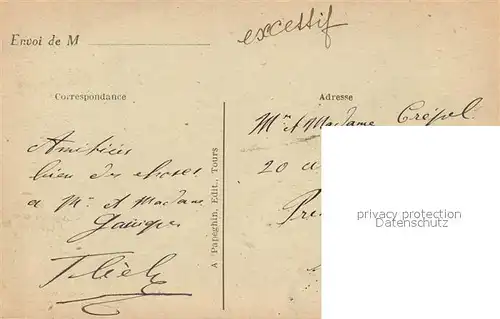 Envoi de M
excessif
Correspondance
Adresse
Amitiés
bien des choses
a Mr. et Madame
A. Papeghin, Edit., Tours
Mr et Madame Crépel
20
privacy protection
Datenschutz